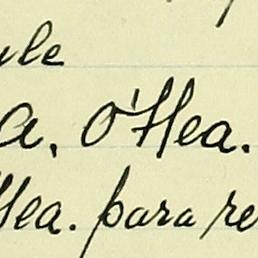 a. O'Hea.
Hea. para re